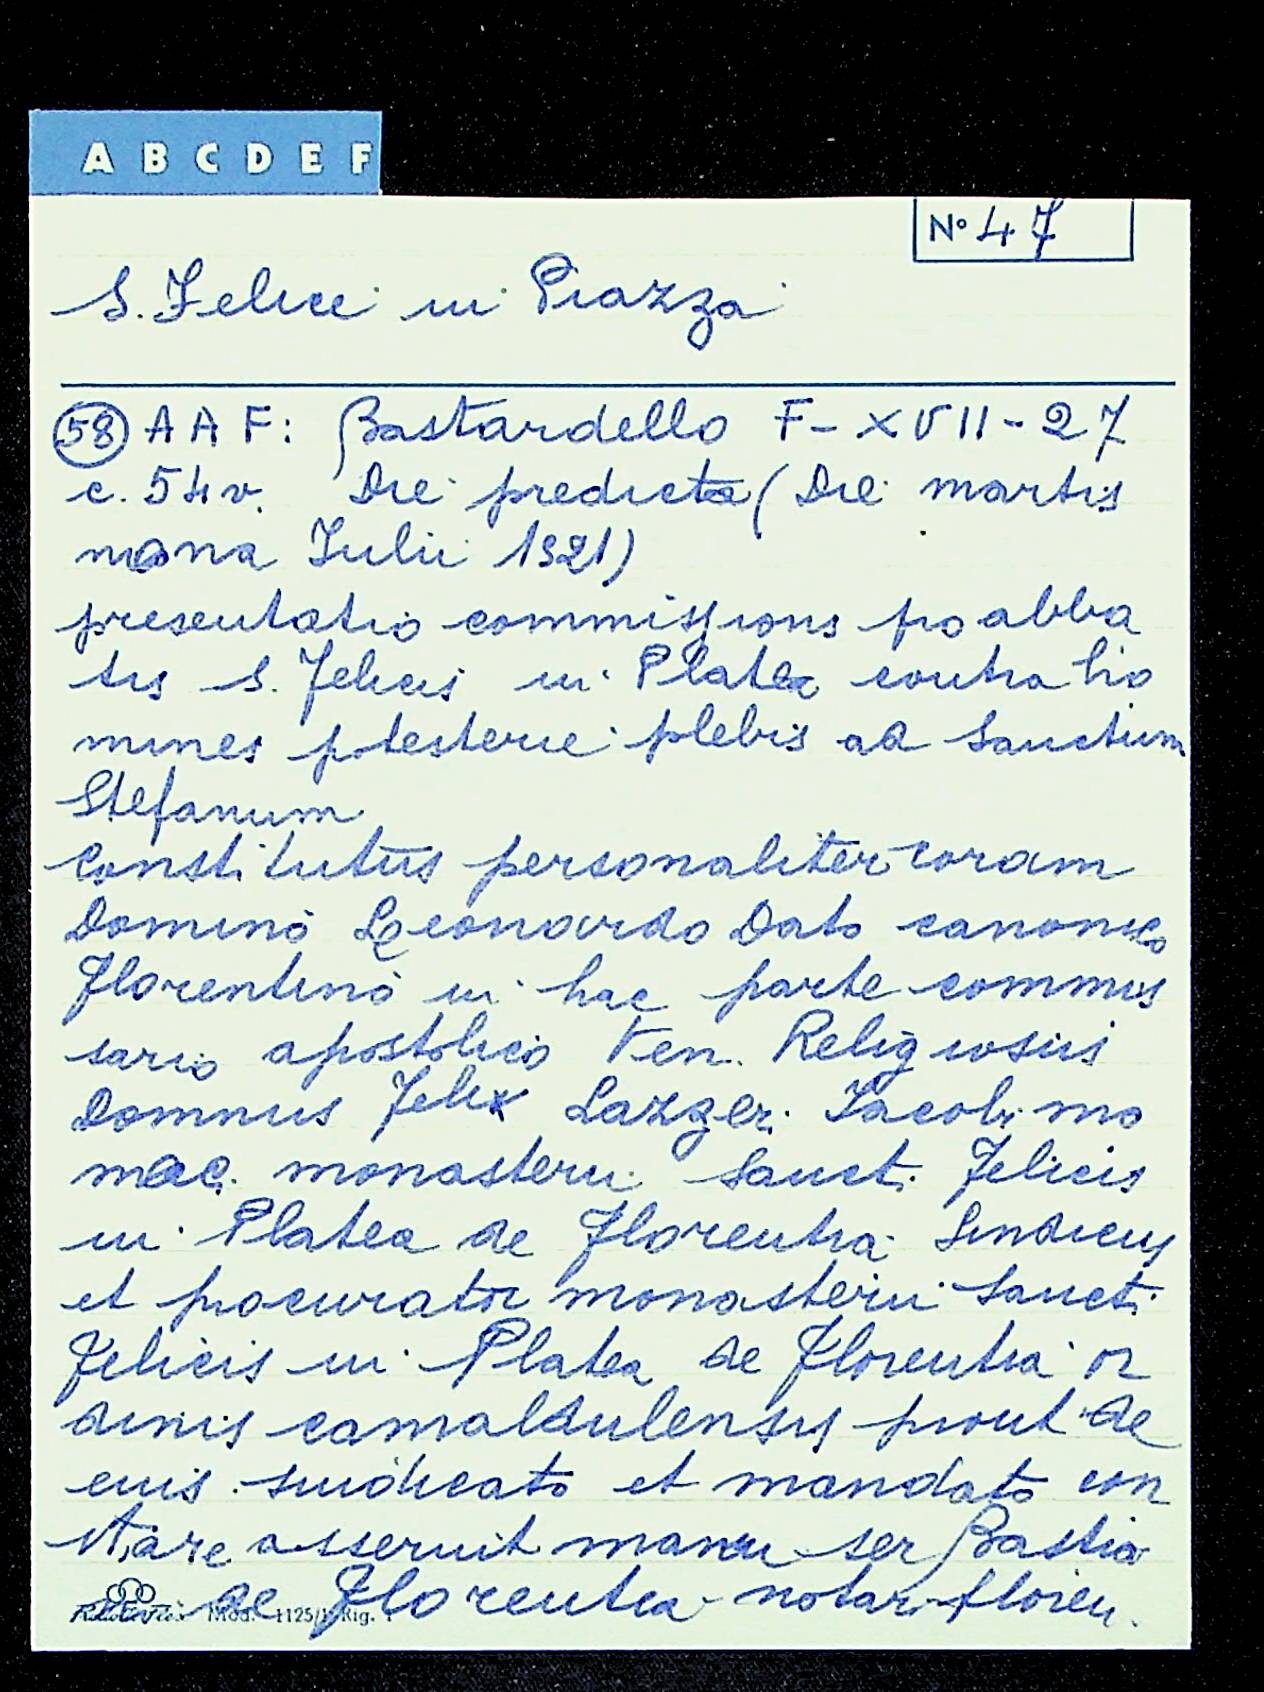 A B C D E F
N° 47
S. Felice in Piazza
58 A A F: Bastardello F - XVII - 27
c. 54 v. Die predicta (Die martis
nona Iulii 1521)
presentatio commissionis pro abba
tis S. Felicis in Platea contra ho
mines potesterie plebis ad Sanctum
Stefanum
Constitutus personaliter coram
Domino Leonardo Dato canonico
Florentino in hac parte commis
sario apostolico Ven. Religiosus
Domnus Felix Lazzeri Iacobi mo
mac. monasterii Sancti Felicis
in Platea de Florentia Sindicus
et procurator monasterii Sancti
Felicis in Platea de Florentia or
dinis camaldulensis prout de
euis sindicato et mandato con
stare asseruit manu ser Bastia
de Florentia notari floren.
Mod. 1125/1 Rig.